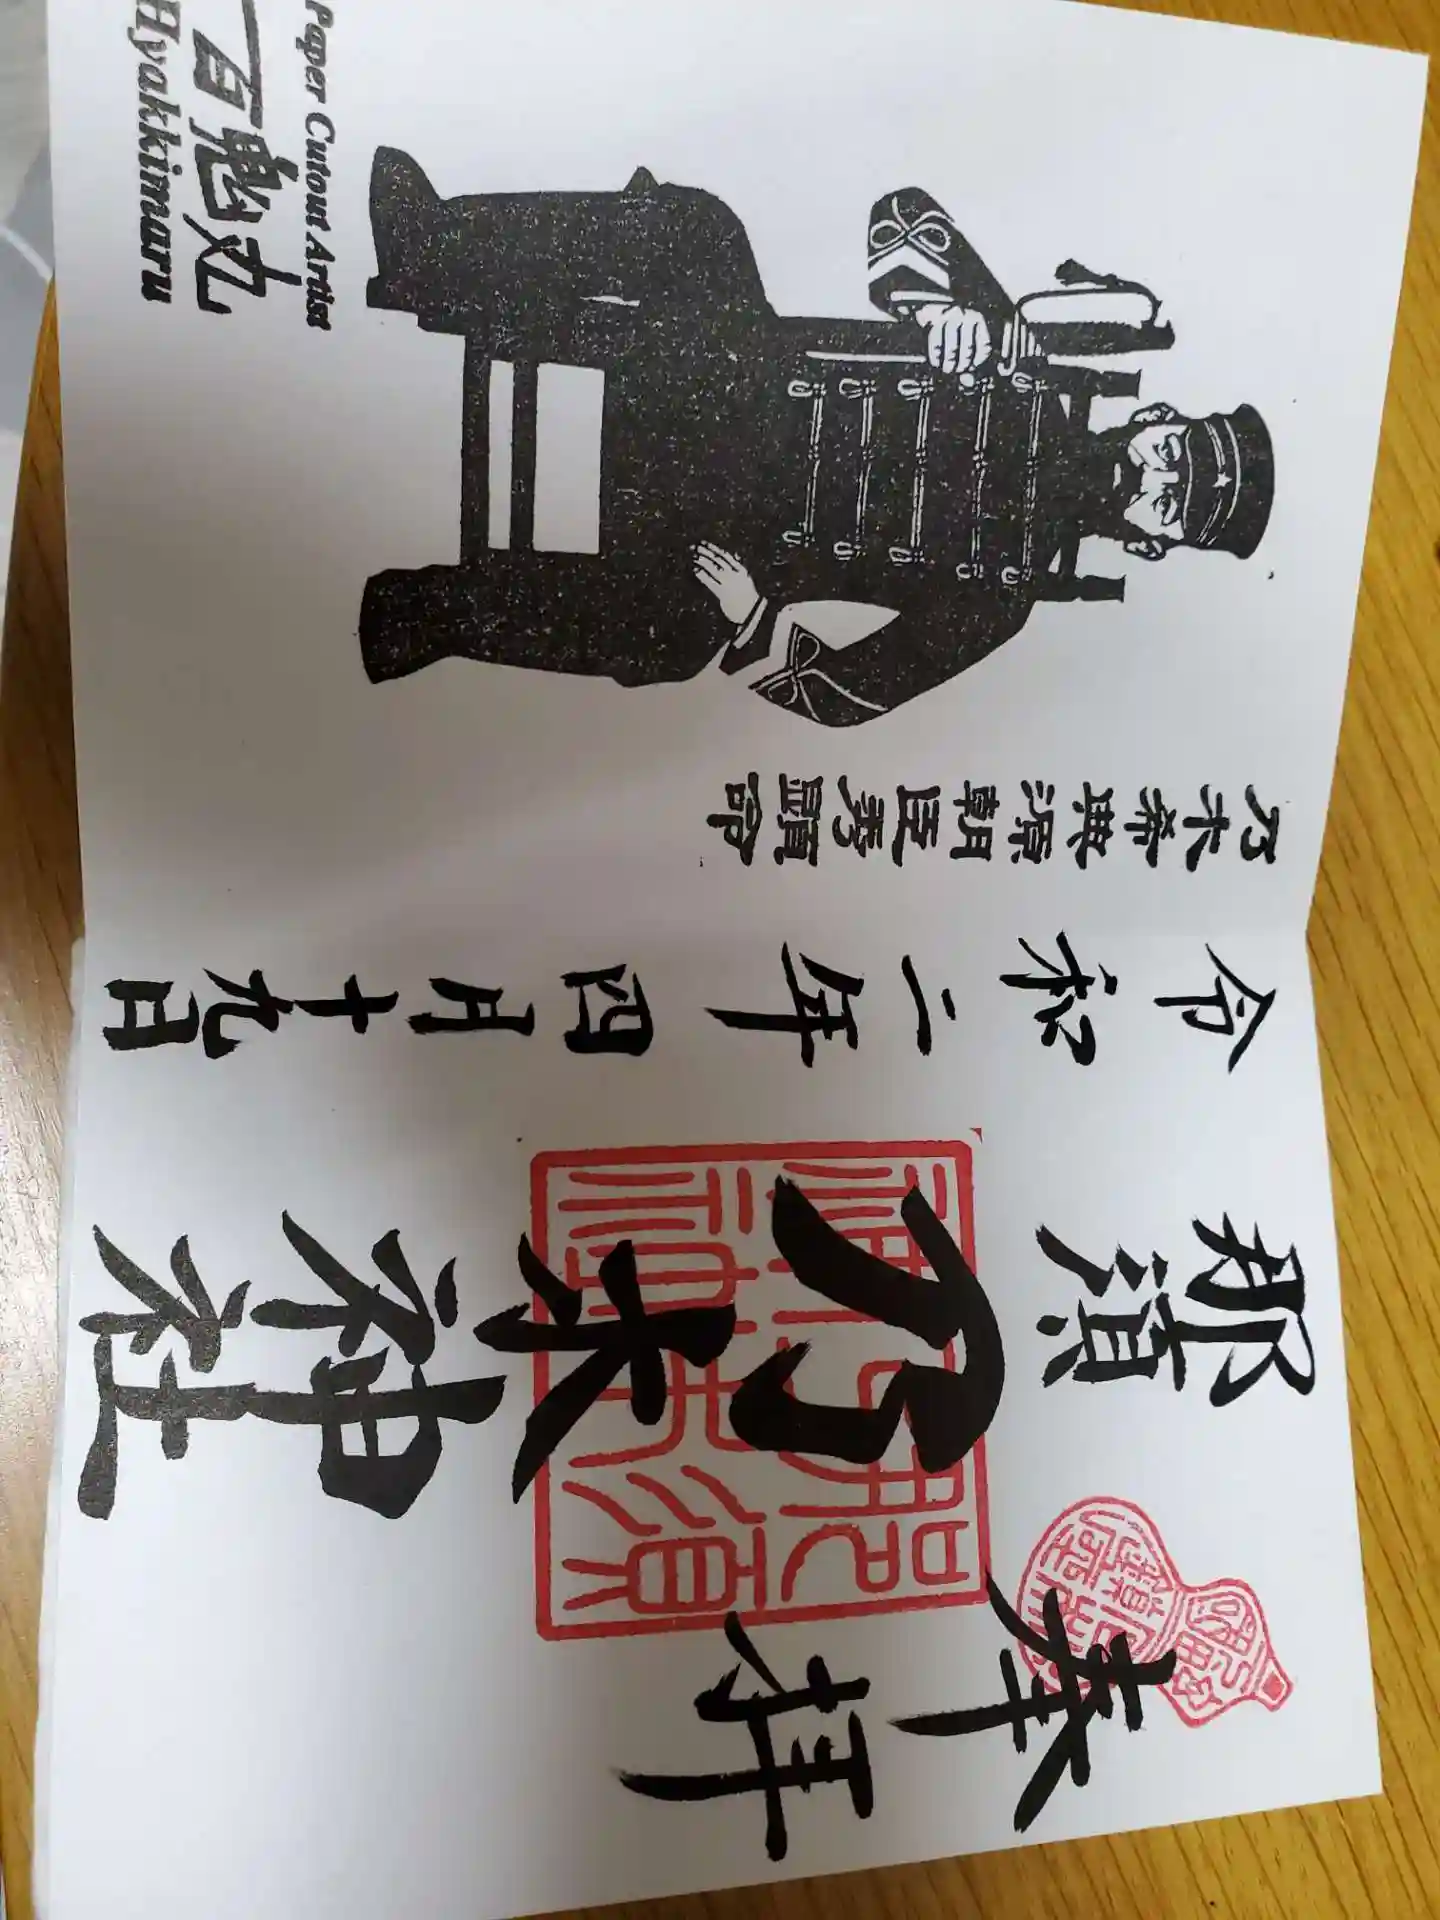 奉拝
那須
乃木
神社
令和二年四月十九日
乃木希典源朝臣秀顕命
Paper Cutout Artist
百鬼丸
Hyakkimaru